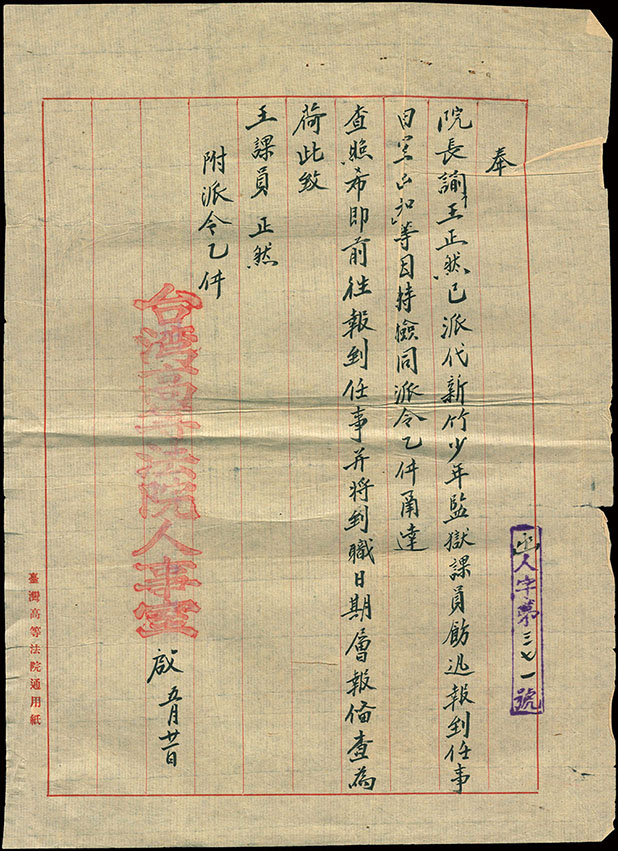 函人字第三七一號
奉
院長諭王正然已派代新竹少年監獄課員飭迅報到任事
等因持檢同派令乙件甬達
查照希即前往報到任事并將到職日期層報備查為
荷此致
王課員 正然
附派令乙件
台湾高等法院人事室 啟 五月廿一日
臺灣高等法院通用紙